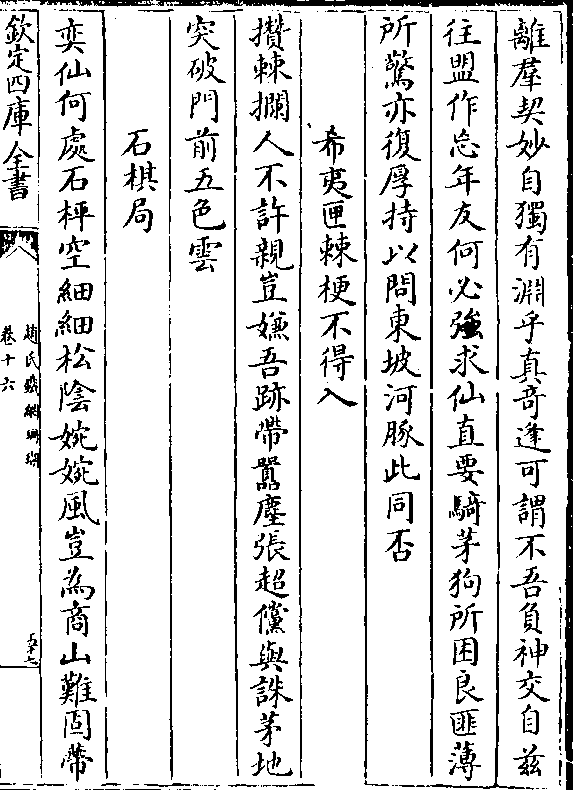 離羣契妙自獨有淵乎真竒逢可謂不吾負神交自兹
往盟作忘年友何必強求仙直要騎茅狗所困良匪薄
所驚亦復厚持以問東坡河豚此同否
希夷匣棘梗不得入
攢棘攔人不許親豈嫌吾跡帶囂塵張超儻與誅茅地
突破門前五色雲
石棋局
奕仙何處石枰空細細松陰婉婉風豈為商山難固蔕
欽定四庫全書
趙氏鐵網珊瑚
卷十六